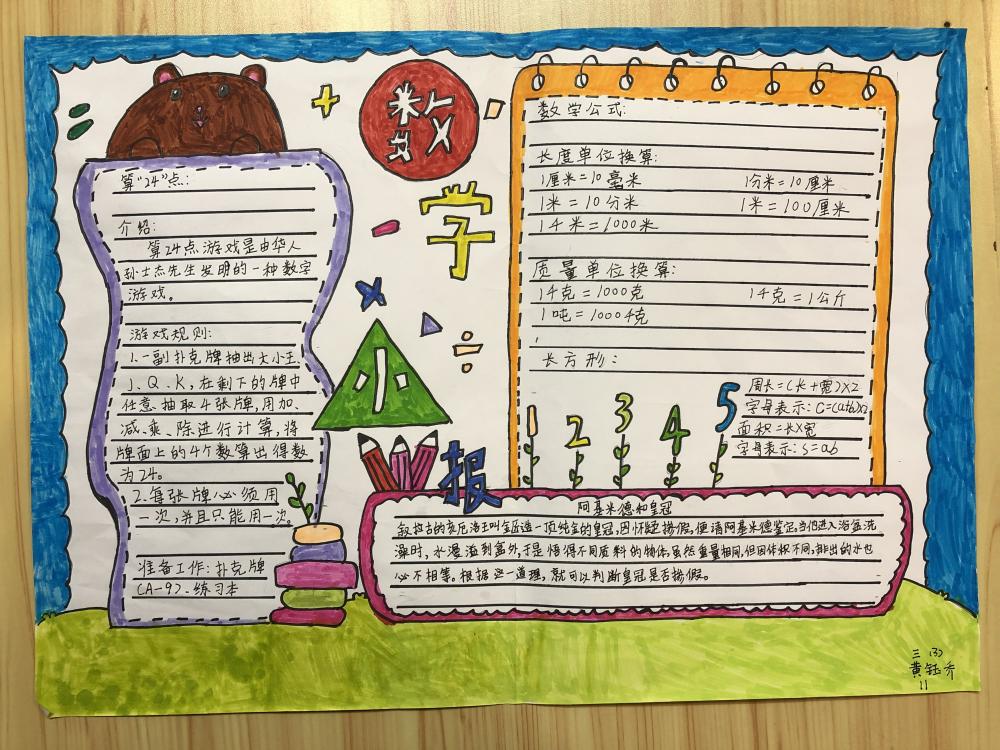 数学小报
算"24"点:
介绍:
算24点游戏是由华人
孙士杰先生发明的一种数字
游戏。
游戏规则:
1.一副扑克牌抽出大小王、
J、Q、K,在剩下的牌中
任意抽取4张牌,用加、
减、乘、除进行计算,将
牌面上的4个数算出得数
为24。
2.每张牌必须用
一次,并且只能用一次。
准备工作:扑克牌
(A-9)、练习本
数学公式:
长度单位换算:
1厘米=10毫米 1分米=10厘米
1米=10分米 1米=100厘米
1千米=1000米
质量单位换算:
1千克=1000克 1千克=1公斤
1吨=1000千克
长方形:
周长=(长+宽)X2
字母表示:C=(a+b)x2
面积=长X宽
字母表示:S=ab
1 2 3 4 5
阿基米德和皇冠
叙拉古的亥厄洛王叫金匠造一顶纯金的皇冠,因怀疑掺假,便请阿基米德鉴定,当他进入浴盆洗
澡时,水漫溢到盆外,于是悟得不同质料的物体,虽然重量相同,但因体积不同,排出的水也
必不相等。根据这一道理,就可以判断皇冠是否掺假。
三(3)
黄钰乔
11